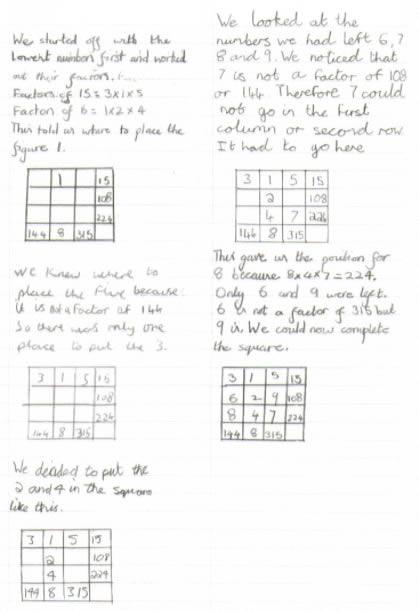 We started off with the
Lowest numbers first and worked
out their factors.
Factors of 15 = 3x1x5
Factors of 8 = 1x2x4
This told us where to place the
figure 1.
1 15
108
224
144 8 315
We knew where to
place the five because
it is not a factor of 144
So there was only one
place to put the 3.
3 1 5 15
108
224
144 8 315
We decided to put the
2 and 4 in the square
like this.
3 1 5 15
2 108
4 224
144 8 315
We looked at the
numbers we had left 6, 7
8 and 9. We noticed that
7 is not a factor of 108
or 144. Therefore 7 could
not go in the first
column or second row
It had to go here
3 1 5 15
2 108
4 7 224
144 8 315
This gave us the position for
8 because 8x4x7=224.
Only 6 and 9 were left.
6 is not a factor of 315 but
9 is. We could now complete
the square.
3 1 5 15
6 2 9 108
8 4 7 224
144 8 315